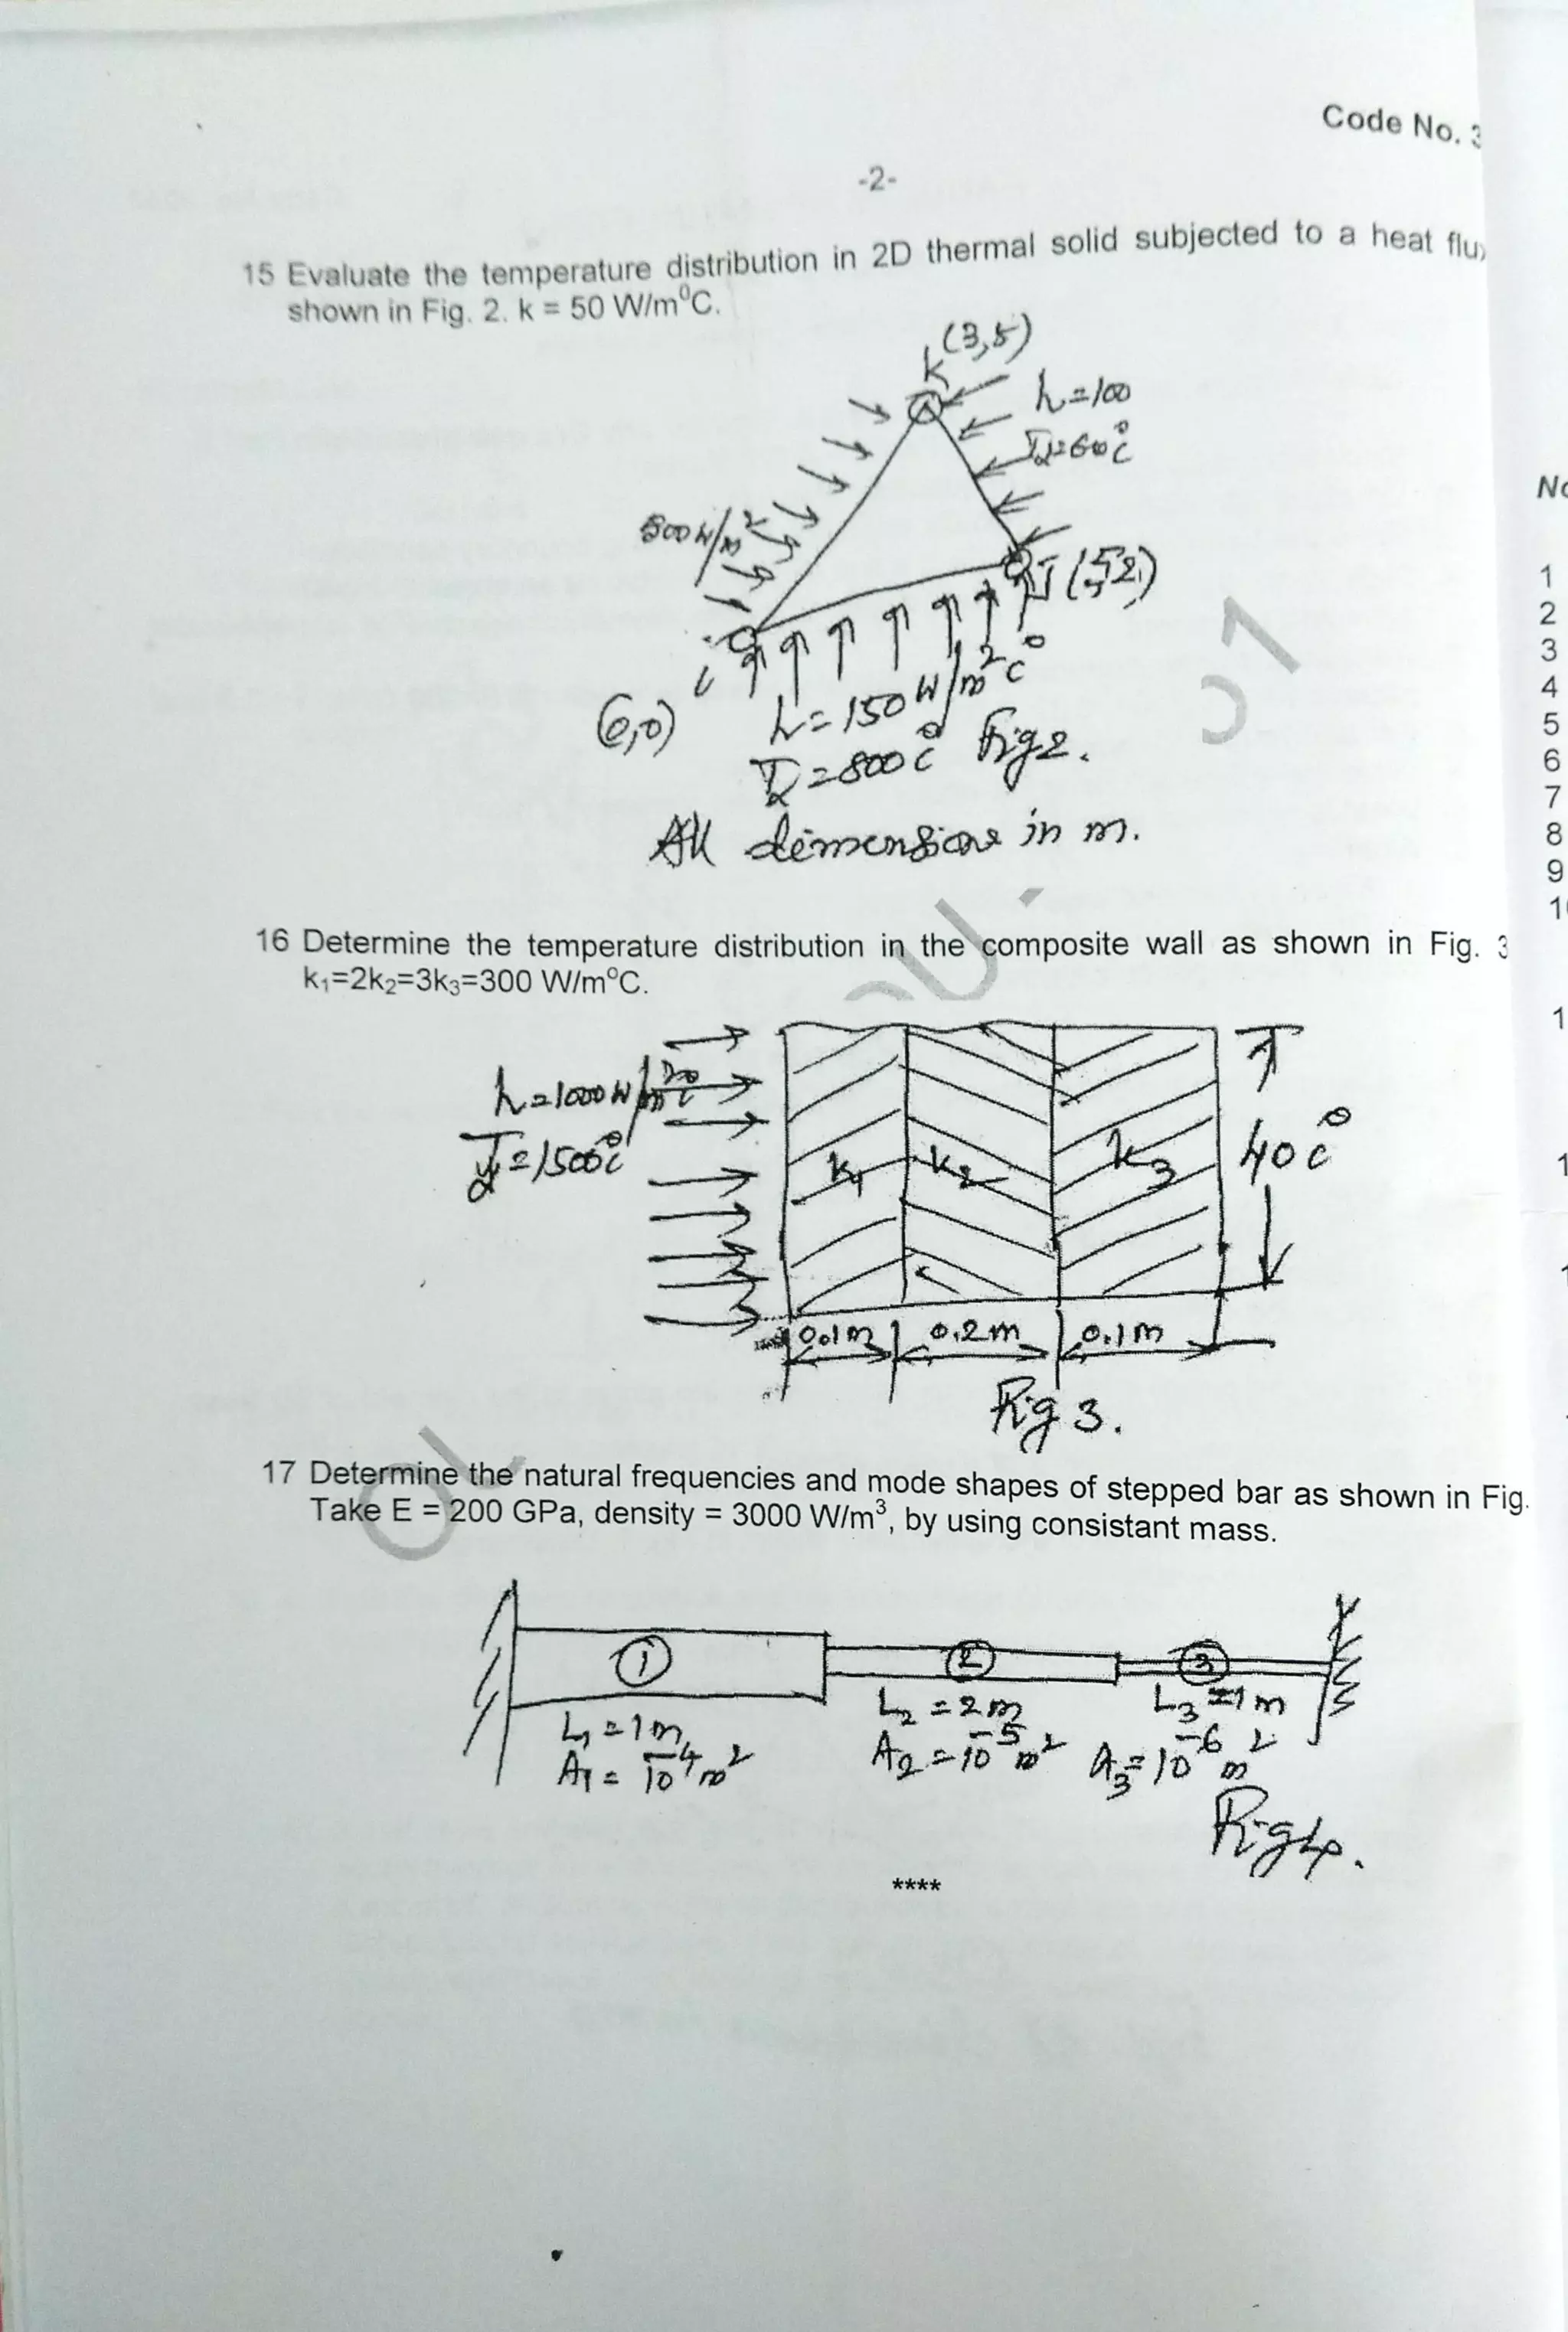 Code No. 3
-2-
15 Evaluate the temperature distribution in 2D thermal solid subjected to a heat flux
shown in Fig. 2. k = 50 W/m⁰C.
K (3,5)
h=100
T∝=60°C
500W/m²
J (5,2)
i
(0,0)
h=150 W/m²°C
T∝=800°C Fig 2.
All dimensions in m.
16 Determine the temperature distribution in the composite wall as shown in Fig. 3
k₁=2k₂=3k₃=300 W/m⁰C.
h=1000W/m²°C
T∝=1500°C
k1 k2 k3
40°C
0.1m 0.2m 0.1m
Fig 3.
17 Determine the natural frequencies and mode shapes of stepped bar as shown in Fig.
Take E = 200 GPa, density = 3000 W/m³, by using consistant mass.
1 2 3
L1=1m L2=2m L3=1m
A1=10⁻⁴m² A2=10⁻⁵m² A3=10⁻⁶m²
Fig 4.
****
No
1
2
3
4
5
6
7
8
9
10
1
1